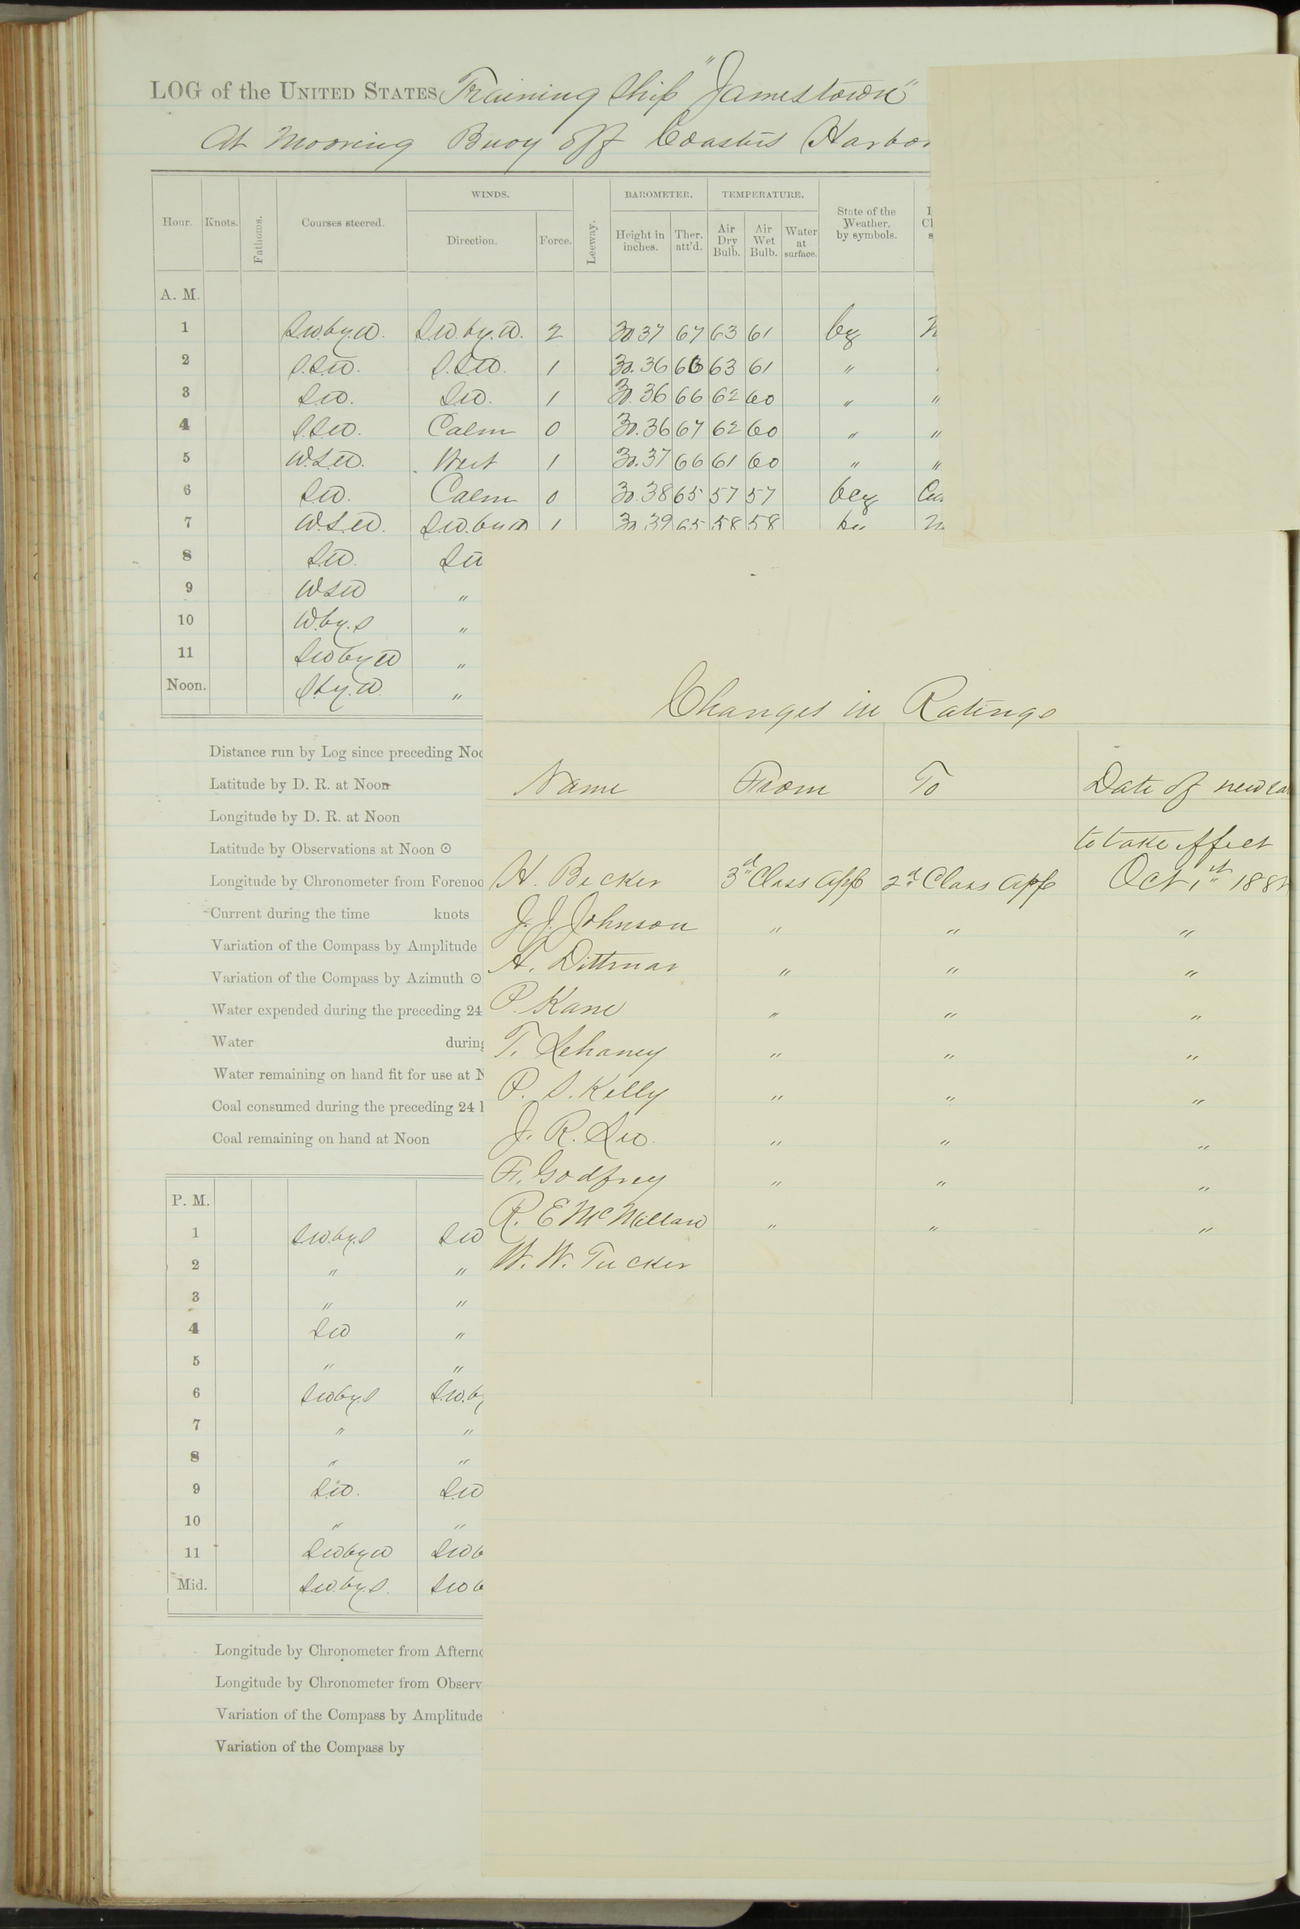 LOG of the UNITED STATES Training Ship "Jamestown"
At Mooring Buoy off Coasters Harbor
Hour. Knots. Fathoms. Courses steered. WINDS. Direction. Force. Leeway. BAROMETER. Height in inches. Ther. att'd. TEMPERATURE. Air Dry Bulb. Air Wet Bulb. Water at surface. State of the Weather, by symbols.
A. M.
1 SW.by.W. SW.by.W. 2 30.37 67 63 61
2 S.SW. S.SW. 1 30.36 66 63 61 "
3 SW. SW. 1 30.36 66 62 60 " "
4 S.SW. Calm 0 30.36 67 62 60 " "
5 W.SW. West 1 30.37 66 61 60 " "
6 SW. Calm 0 30.38 65 57 57
7 W.SW. SW.by W 1 30.39 65 58 58
8 SW. SW
9 WSW "
10 W.by.S "
11 SWbyW "
Noon. S.by.W. "
Distance run by Log since preceding Noo
Latitude by D. R. at Noon
Longitude by D. R. at Noon
Latitude by Observations at Noon ⊙
Longitude by Chronometer from Forenoo
Current during the time knots
Variation of the Compass by Amplitude
Variation of the Compass by Azimuth ⊙
Water expended during the preceding 24
Water during
Water remaining on hand fit for use at N
Coal consumed during the preceding 24 h
Coal remaining on hand at Noon
P. M.
1 SWby.S SW
2 " "
3 " "
4 SW "
5 " "
6 SWby.S S.W.by
7 " "
8 " "
9 SW. SW
10 " "
11 SWbyW SWb
Mid. SW.by.S. SWb
Longitude by Chronometer from Afterno
Longitude by Chronometer from Observ
Variation of the Compass by Amplitude
Variation of the Compass by
Changes in Ratings
Name From To Date of new
to take effect
H. Becker 3d Class App 2d Class App Oct 1st 188
J. J. Johnson " " "
A. Dittmar " " "
P. Kane " " "
T. Lehaney " " "
P. S. Kelly " " "
J. R. Leo. " " "
F. Godfrey " " "
R. E McMillan " " "
W. W. Tucker